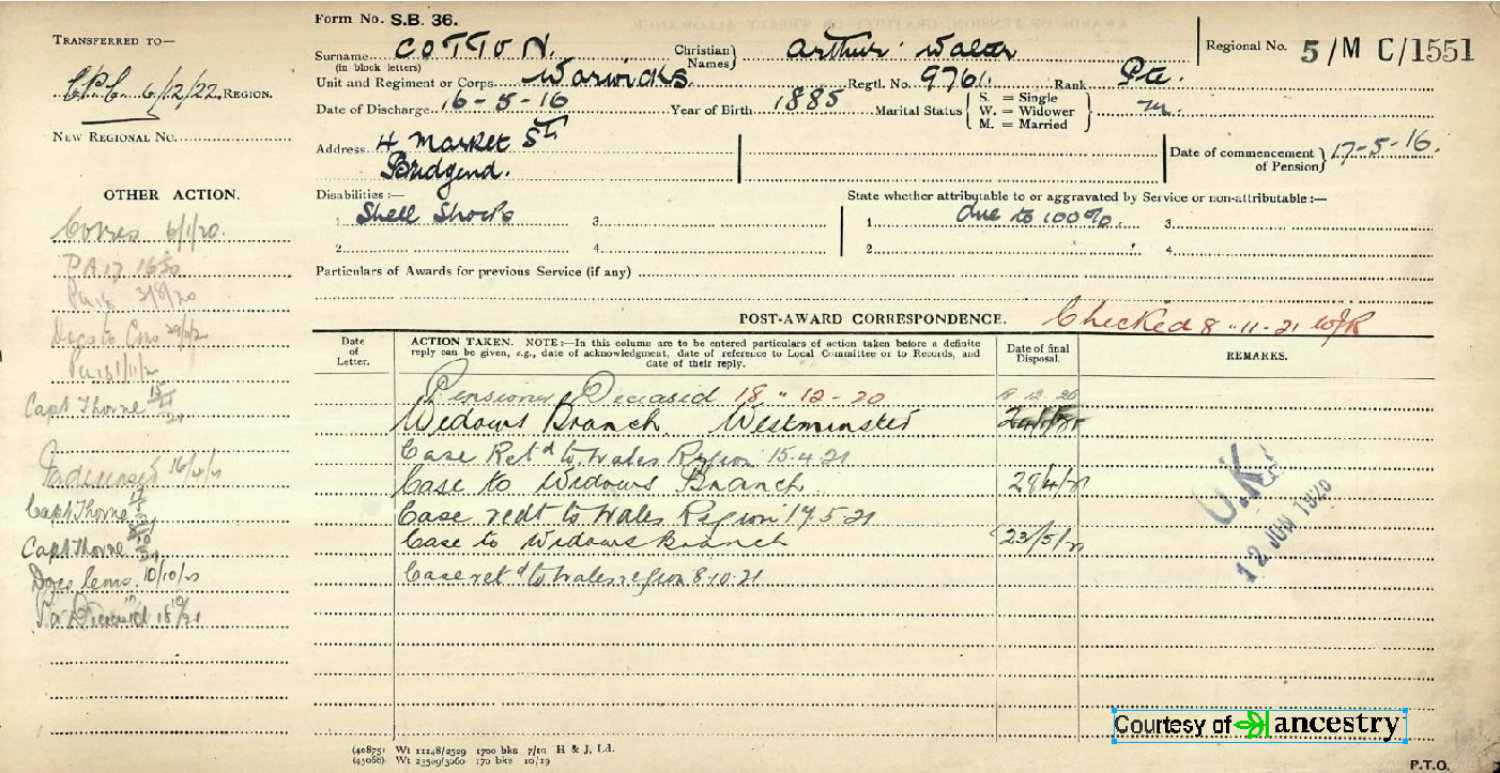 Form No. S.B. 36.
TRANSFERRED TO—
6/12/22. REGION.
NEW REGIONAL No.
OTHER ACTION.
6/1/20.
PA 17
3/8/20
Docs to
Capt Thorne
16/4/
Capt Thorne
Capt Thorne
Docs 10/10/
Deceased
Surname COTTON.
(in block letters)
Christian Names Arthur Walter
Regional No. 5/M C/1551
Unit and Regiment or Corps Warwicks. Regtl. No. 9761. Rank Pte.
Date of Discharge 16-5-16 Year of Birth 1885 Marital Status S. = Single W. = Widower M. = Married M.
Address 4 Market St
Bridgend.
Date of commencement of Pension 17-5-16.
Disabilities:— State whether attributable to or aggravated by Service or non-attributable:—
1. Shell Shock 3. 1. Due to 100%. 3.
2. 4. 2. 4.
Particulars of Awards for previous Service (if any)
POST-AWARD CORRESPONDENCE. Checked 8-11-21
Date of Letter.
ACTION TAKEN. NOTE:—In this column are to be entered particulars of action taken before a definite
reply can be given, e.g., date of acknowledgment, date of reference to Local Committee or to Records, and
date of their reply.
Date of final Disposal.
REMARKS.
Pensioner Deceased 18-12-20
Widows Branch. Westminster
Case Retd to Wales Region 15.4.21
Case to Widows Branch 28/4/21
Case redt to Wales Region 17.5.21
Case to Widows Branch 23/5/21
Case retd to Wales region 8.10.21
U.K.
12 JUN 1920
Courtesy of ancestry
(40875) Wt 11148/2529 1700 bks 7/19 H & J, Ld.
(45068) Wt 23509/3060 170 bks 10/19
P.T.O.